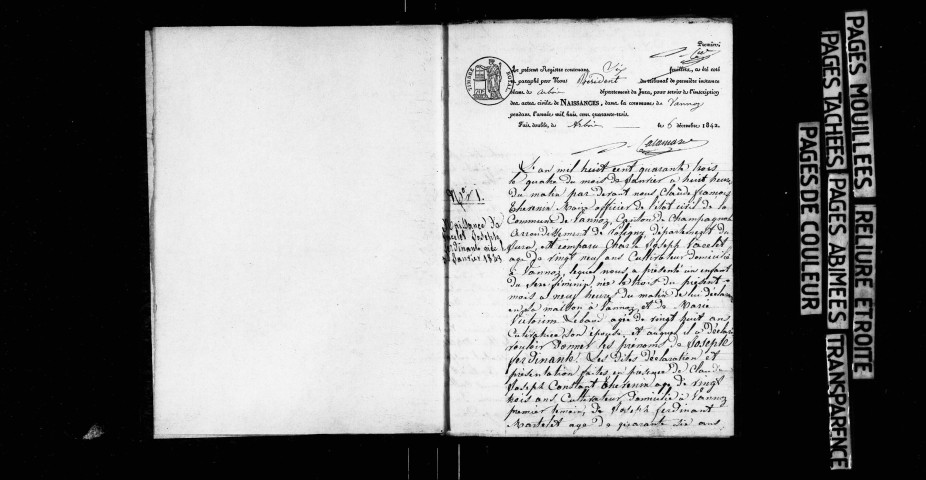 Premier
Le présent Registre contenant Six feuillets, a été coté
et paraphé par Nous Président du tribunal de première instance
séant à Arbois département du Jura, pour servir de l'inscription
des actes civils de NAISSANCES, dans la commune de Vannoz
pendant l'année mil huit cent quarante-trois.
Fait double, à Arbois le 6 décembre 1842.
TIMBRE ROYAL
N° 1.
Naissance de
Joseph
L'an mil huit cent quarante trois
le quatre du mois de Janvier à huit heures
du matin par devant nous Claude françois
Thevenin Maire officier de l'état civil de la
Commune de Vannoz, Canton de Champagnole
Arrondissement de Poligny département du
Jura, est comparu Charle Joseph
age de vingt neuf ans Cultivateur domicilié
à Vannoz, lequel nous a présenté un enfant
du sexe féminin née le trois du présent
mois a neuf heures du matin de lui déclarant
en sa maison à Vannoz et de Marie
agée de vingt huit ans
Cultivatrice son épouse et auquel il a déclaré
vouloir donner les prénoms de Joseph
ferdinante. Les dites déclaration et
présentation faites en présence de Claude
Joseph Constant Thevenin age de vingt
trois ans Cultivateur domicilié à Vannoz
premier temoin, de Joseph ferdinant
age de quarante six ans
PAGES MOUILLEES RELIURE ETROITE
PAGES TACHEES PAGES ABIMEES TRANSPARENCE
PAGES DE COULEUR